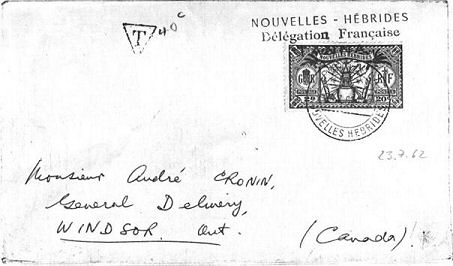 T 40c
NOUVELLES - HÉBRIDES
Délégation Française
NOUVELLES HEBRIDES
RF
NOUVELLES HEBRIDES
23.7.62
Monsieur André CRONIN,
General Delivery,
WINDSOR. Ont.
(Canada)!